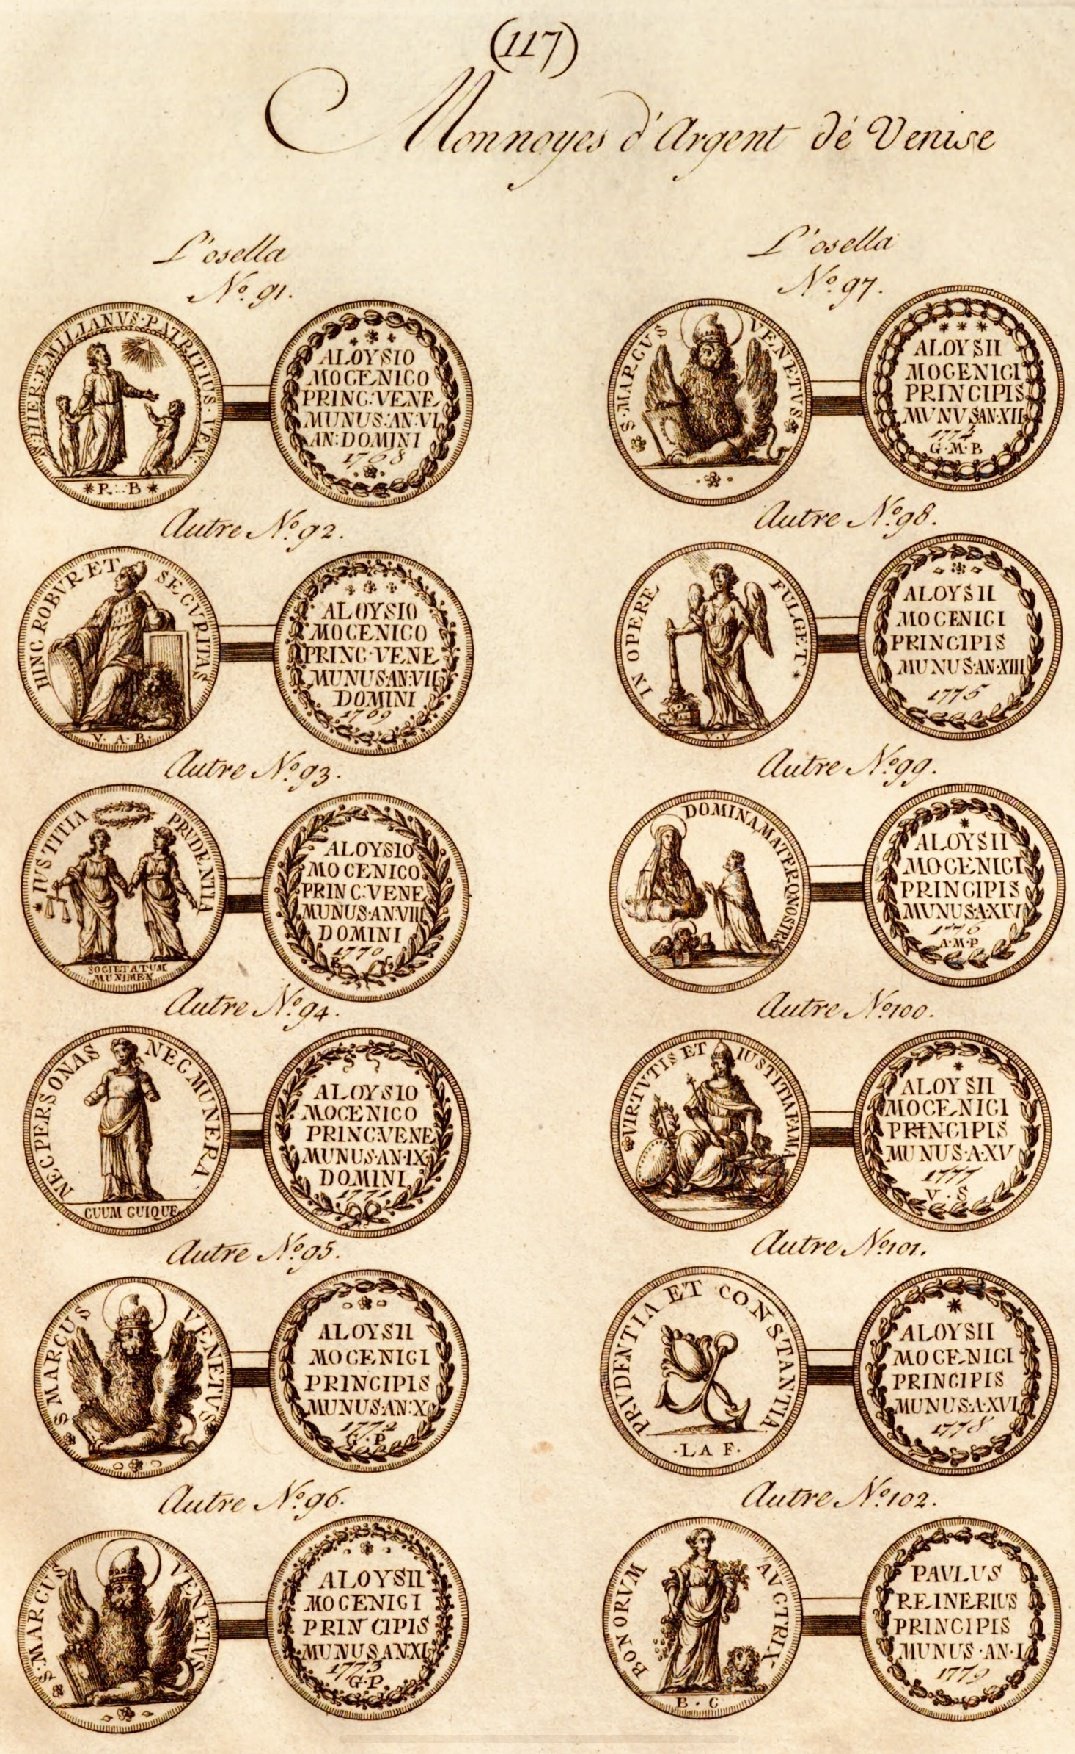 (117)
Monnoyes d'Argent dé Venise
L'osella
No. 91.
S·HIER·EMILIANVS·PATRITIUS·VEN·
*P.::B*
ALOYSIO
MOCENICO
PRINC·VENE
MUNUS·AN·VI
AN·DOMINI
1768
Autre No. 92.
HINC ROBVR ET SECVRITAS
V·A·B·
ALOYSIO
MOCENICO
PRINC·VENE
MUNUS·AN·VII
DOMINI
1769
Autre No. 93.
IUSTITIA PRUDENTIA
SOCIETATUM
MUNIMEN
ALOYSIO
MOCENICO
PRINC·VENE
MUNUS·AN·VIII
DOMINI
1770
Autre No. 94.
NEC·PERSONAS NEC·MUNERA·
CUUM CUIQUE
ALOYSIO
MOCENICO
PRINC·VENE
MUNUS·AN·IX
DOMINI
1771
Autre No. 95.
S MARCUS VENETUS
ALOYSII
MOCENICI
PRINCIPIS
MUNUS·AN·X
1772
G·P
Autre No. 96.
S·MARCUS VENETUS
ALOYSII
MOCENICI
PRINCIPIS
MUNUS ANXI
1773
G·P.
L'osella
No. 97.
S·MARCVS VENETVS
ALOYSII
MOCENICI
PRINCIPIS
MVNVSAN·XII
1774
G·M·B
Autre No. 98.
IN OPERE FULGET
V·V·
ALOYSII
MOCENICI
PRINCIPIS
MUNUS·AN·XIII
1775
Autre No. 99.
DOMINA MATER·Q·NOSTRA
ALOYSII
MOCENICI
PRINCIPIS
MUNUS·A·XIV
1776
A·M·P
Autre No. 100.
VIRTVTIS ET IUSTITIÆ FAMA
ALOYSII
MOCENICI
PRINCIPIS
MUNUS·A·XV
1777
V·S
Autre No. 101.
PRVDENTIA ET CONSTANTIA
·LAF·
ALOYSII
MOCENICI
PRINCIPIS
MUNUS·A·XVI
1778
Autre No. 102.
BONORVM AVCTRIX·
B·C
PAVLUS
REINERIUS
PRINCIPIS
MUNUS·AN·I
1779